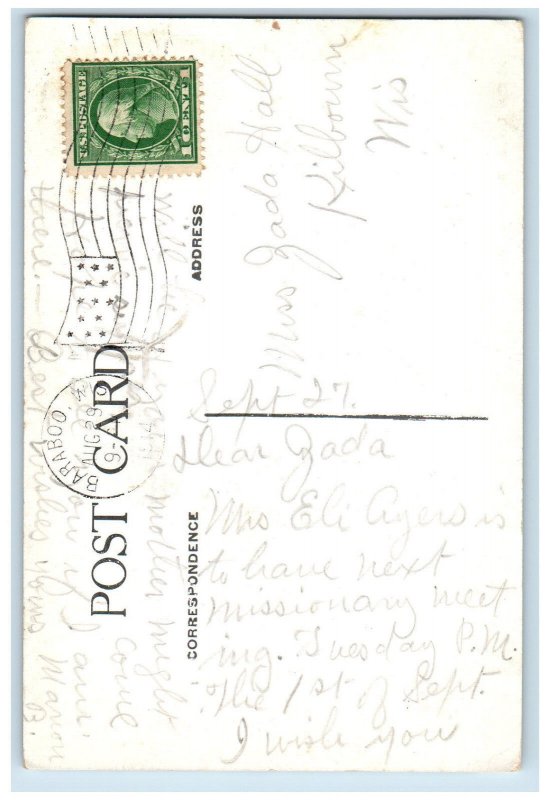 U.S. POSTAGE
1 CENT 1
BARABOO, WIS
AUG 29
9-
POST CARD
ADDRESS
CORRESPONDENCE
Miss Zada Hall
Kilbourn
Wis
Sept 27.
Dear Zada
Mrs Eli Ayers is
to have next
missionary meet
ing. Tuesday P.M.
The 1st of Sept.
I wish you
mother might
come
you if I am
here. — Best wishes yours Marion
B.